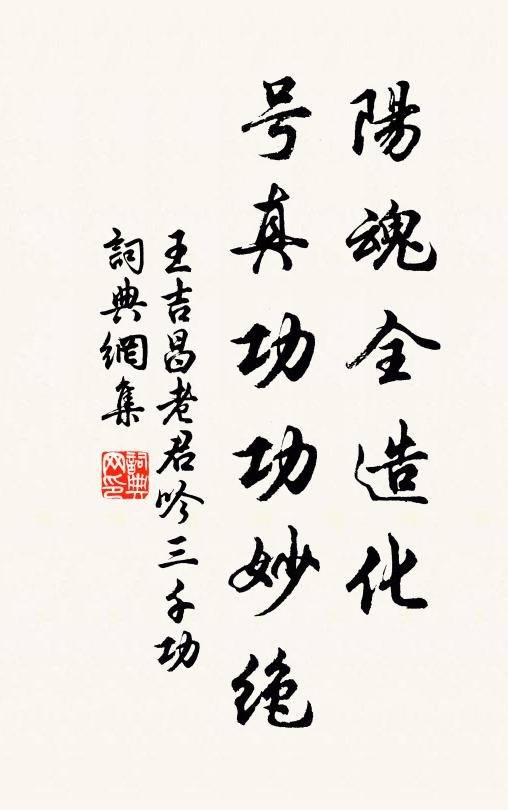 陽魂全造化
号真功功妙绝
王吉昌老君吟三千功
詞典網集
詞典网印